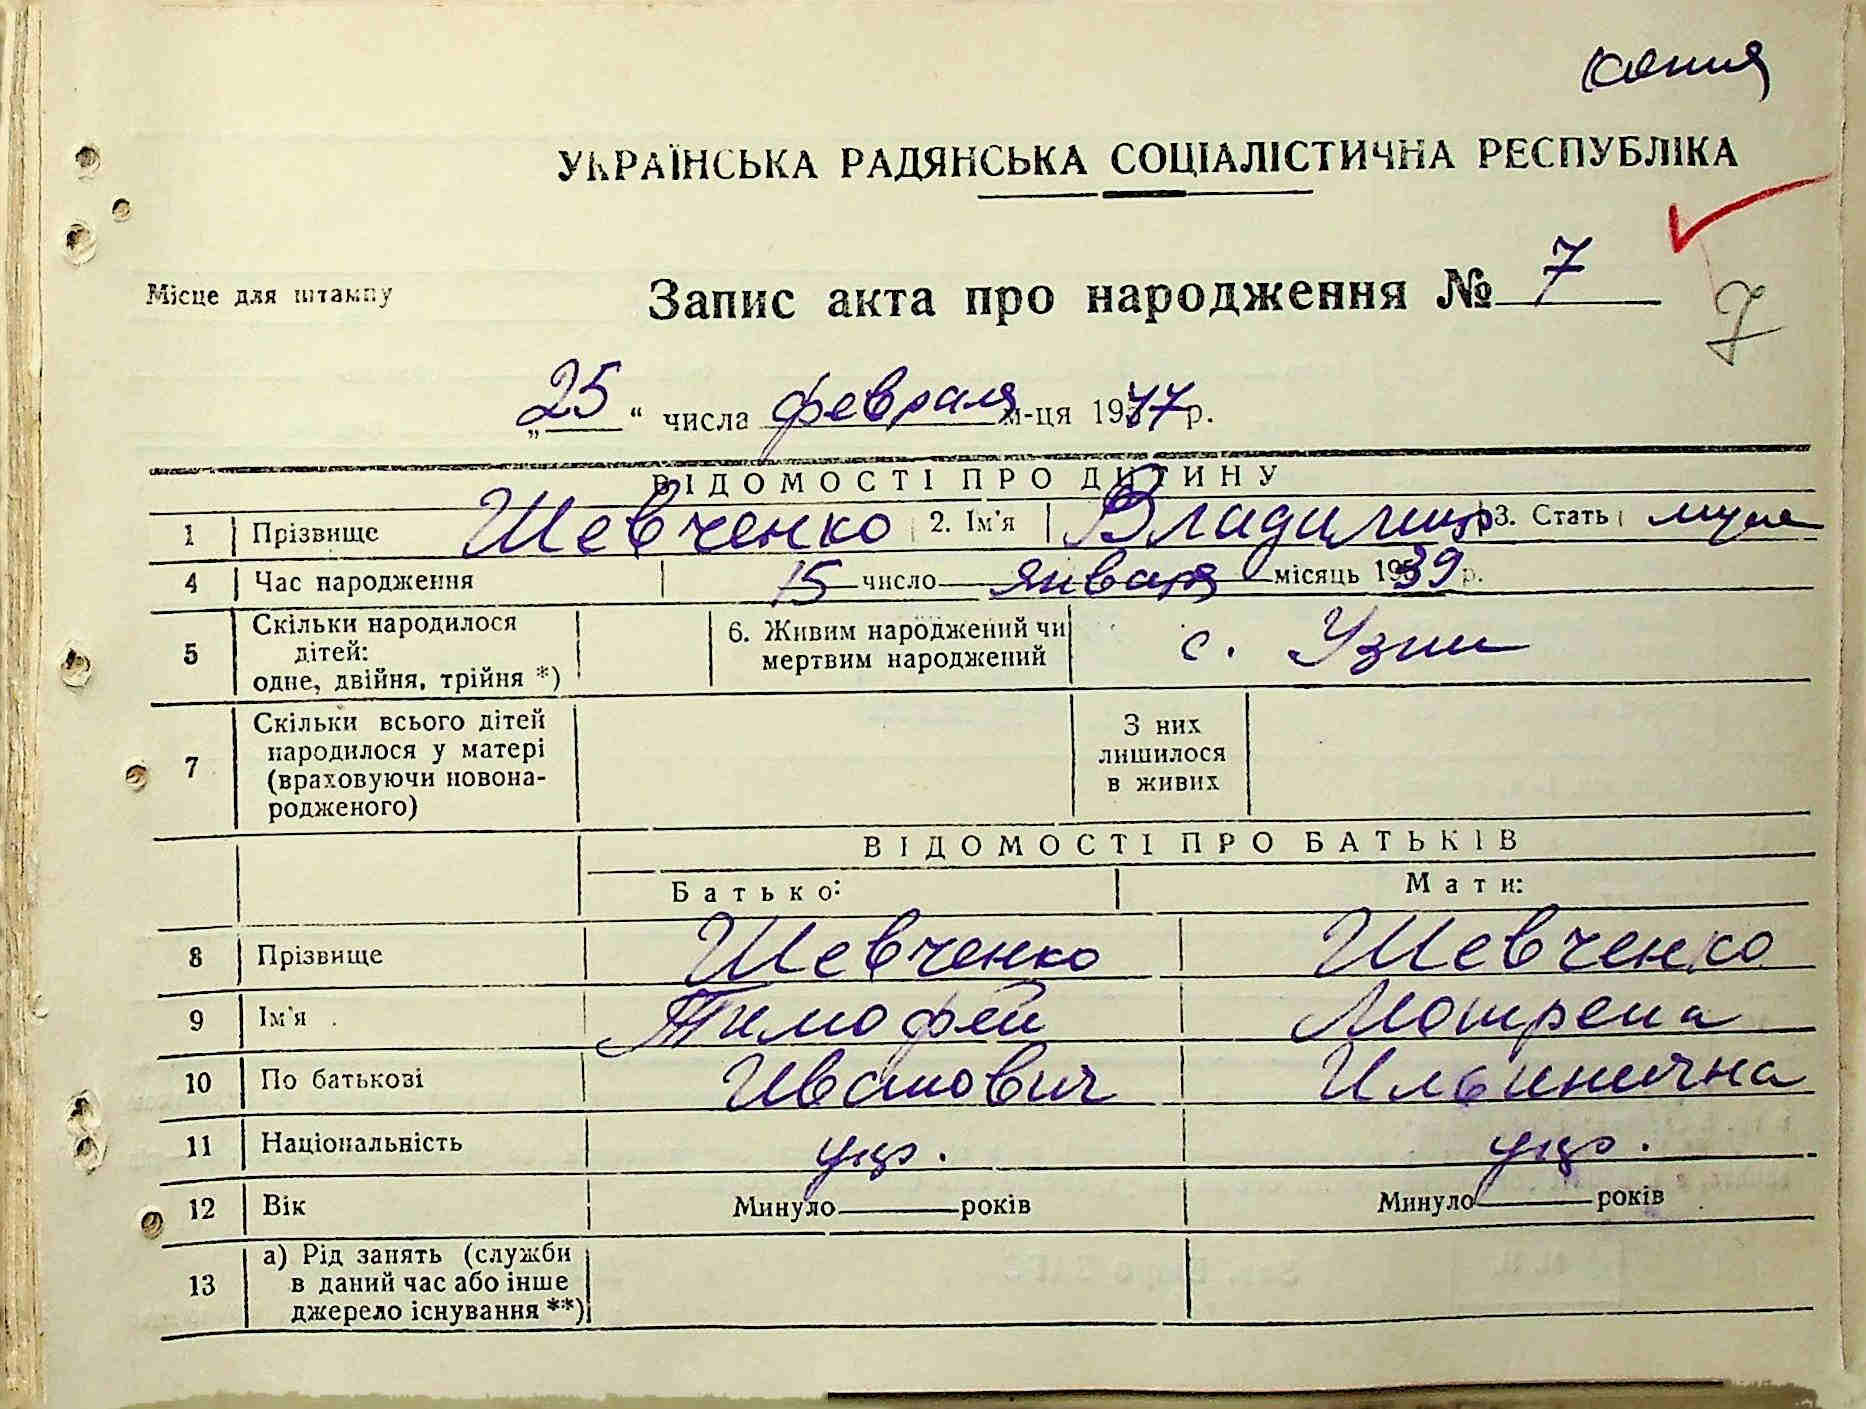 копия
УКРАЇНСЬКА РАДЯНСЬКА СОЦІАЛІСТИЧНА РЕСПУБЛІКА
Місце для штампу
Запис акта про народження № 7
7
„25“ числа февраля м-ця 1977 р.
ВІДОМОСТІ ПРО ДИТИНУ
1 Прізвище Шевченко 2. Ім'я Владимир 3. Стать муж
4 Час народження 15 число января місяць 1939 р.
5 Скільки народилося дітей: одне, двійня, трійня *) 6. Живим народжений чи мертвим народжений с. Узин
7 Скільки всього дітей народилося у матері (враховуючи новонародженого) З них лишилося в живих
ВІДОМОСТІ ПРО БАТЬКІВ
Батько: Мати:
8 Прізвище Шевченко Шевченко
9 Ім'я Тимофей Мотрена
10 По батькові Иванович Ильинична
11 Національність укр. укр.
12 Вік Минуло років Минуло років
13 а) Рід занять (служби в даний час або інше джерело існування **)